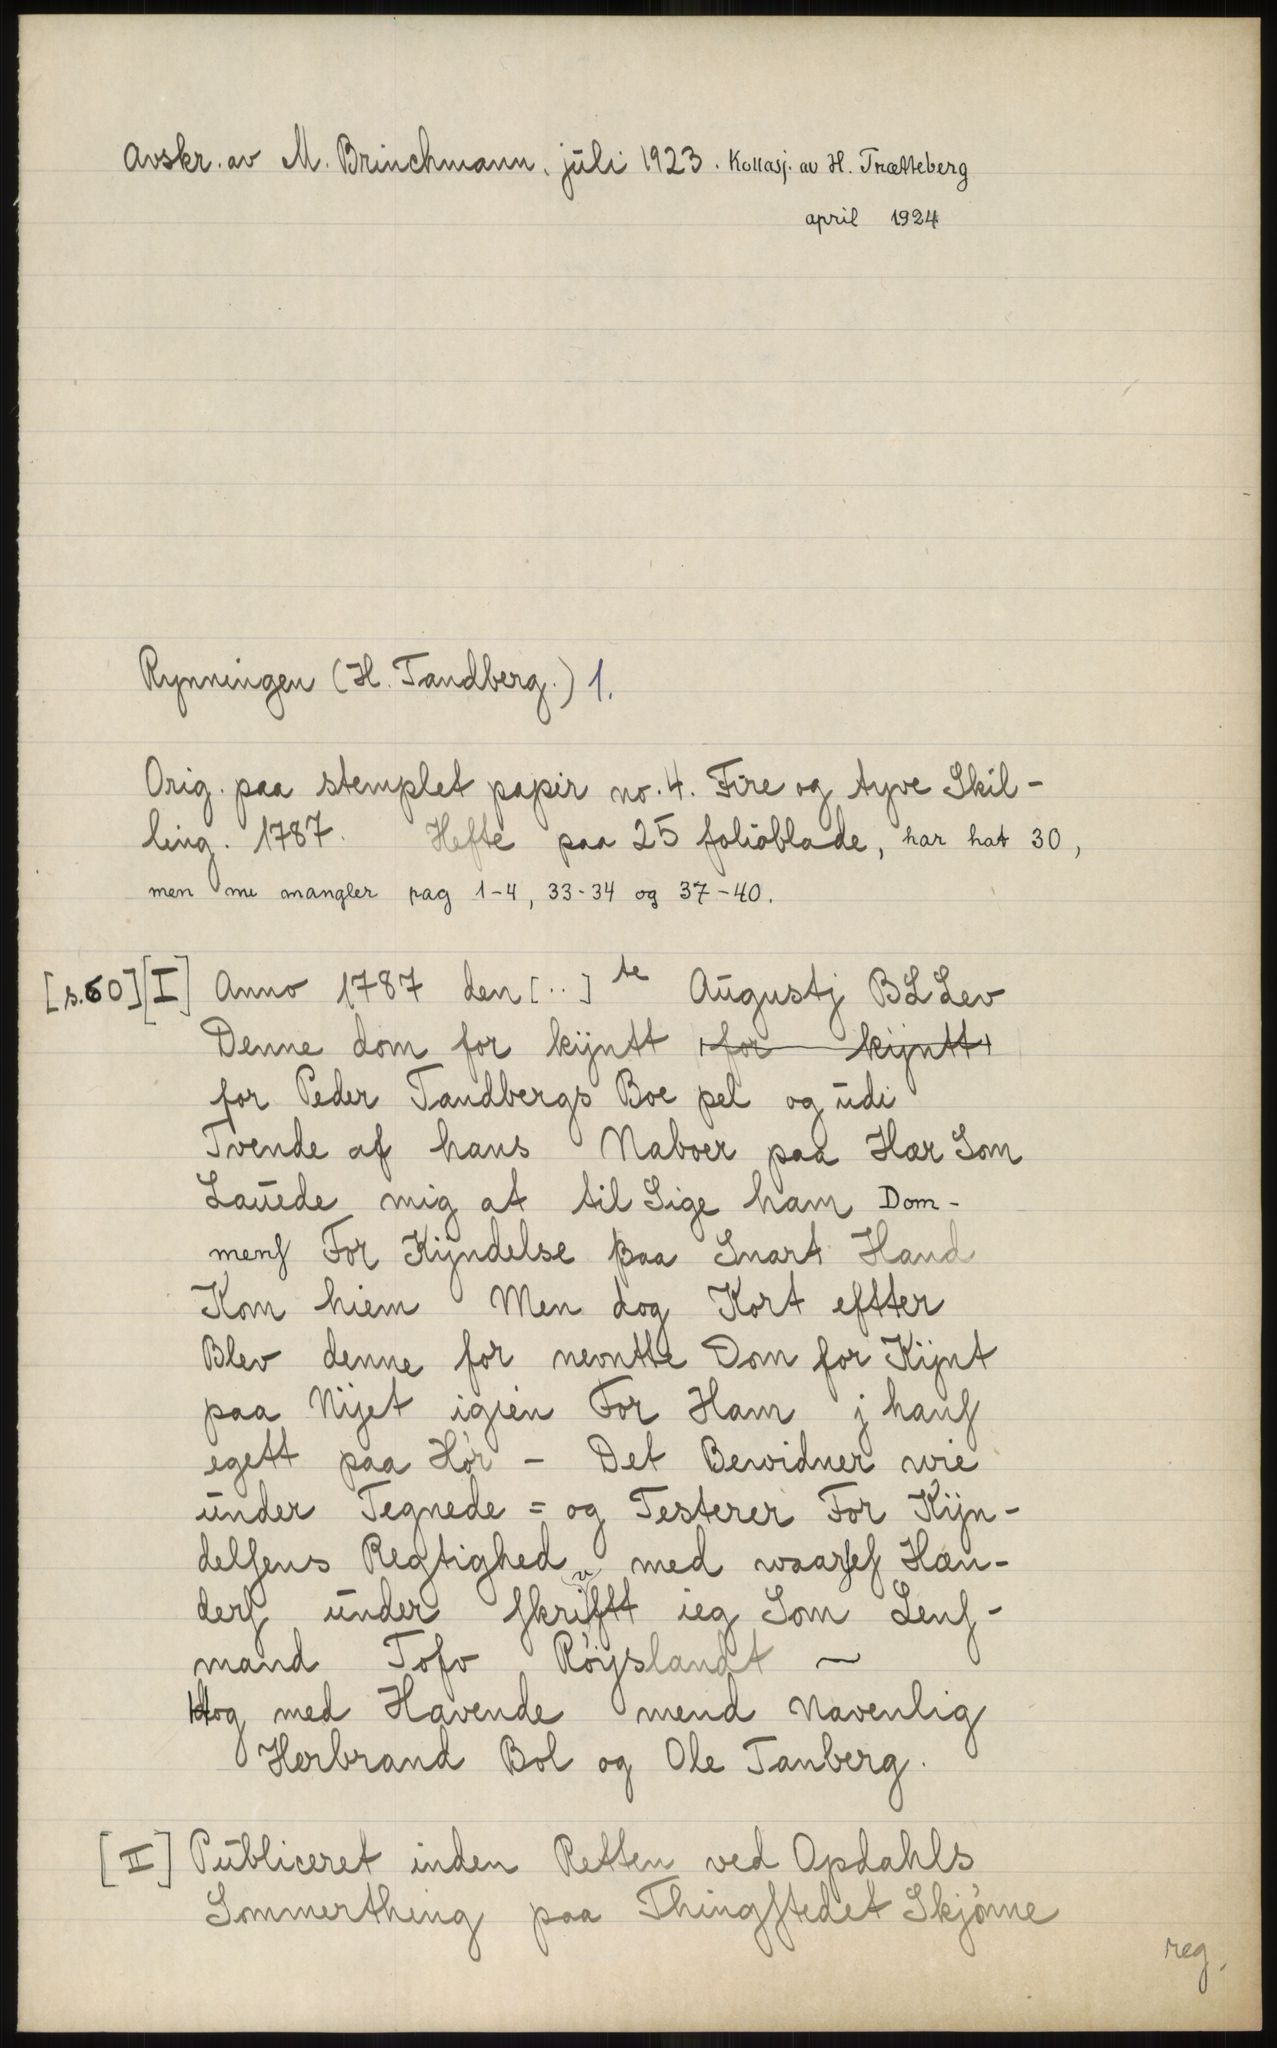 Avskr. av M. Brinchmann, juli 1923. Kollasj. av H. Trætteberg
april 1924
Rynningen (H. Tandberg.) 1.
Orig. paa stemplet papir no. 4. Fire og tyve Skil-
ling. 1787. Hefte paa 25 folioblade, har hat 30,
men nu mangler pag 1-4, 33-34 og 37-40.
[s.60] [I] Anno 1787 den [..] te Augustj BLLev
Denne dom for kijntt for kijntt
for Peder Tandbergs Boe pel og udi
Tvende af hans Naboer paa Hær Som
Lauede mig at til Sige ham Dom-
mens For Kijndelse paa Snart Hand
Kom hiem Men dog Kort eftter
Blev denne for nevntte Dom for Kijnt
paa Nijet igien For Ham j hans
egett paa Hør - Det Bewidner wie
under Tegnede = og Testerer For Kijn-
delsens Regtighed med waarses Hæn-
ders under skrifftt ieg Som Lens-
mand Tofv Røijslandt ~
og med Havende mend Navenlig
Herbrand Bol og Ole Tanberg.
[II] Publiceret inden Retten ved Opdahls
Sommerthing paa Thingstedet Skjønne
reg.